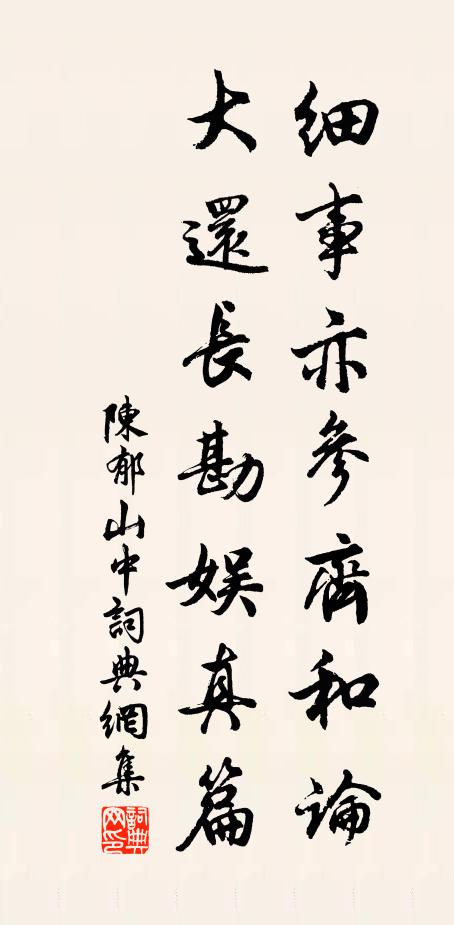 細事亦參齊和論
大還長勘娛真篇
陳郁山中詞典網集
詞典網印